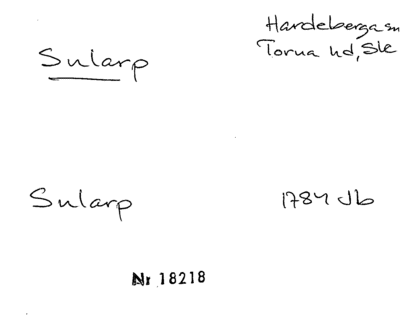 Sularp
Hardeberga sn
Torna hd, Skå
Sularp
1784 Jb
Nr 18218